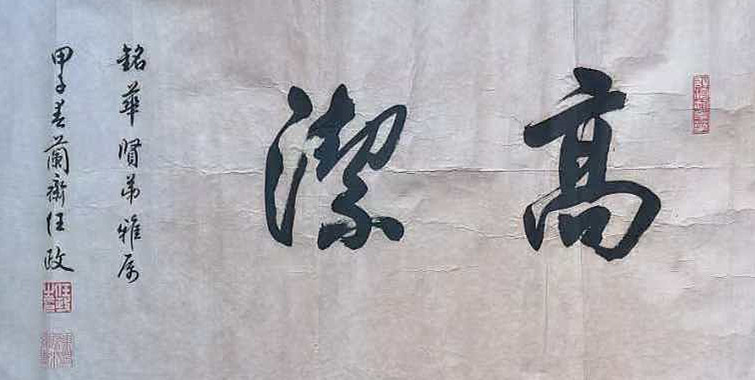 高潔
銘華賢弟雅属
甲子春蘭齋任政